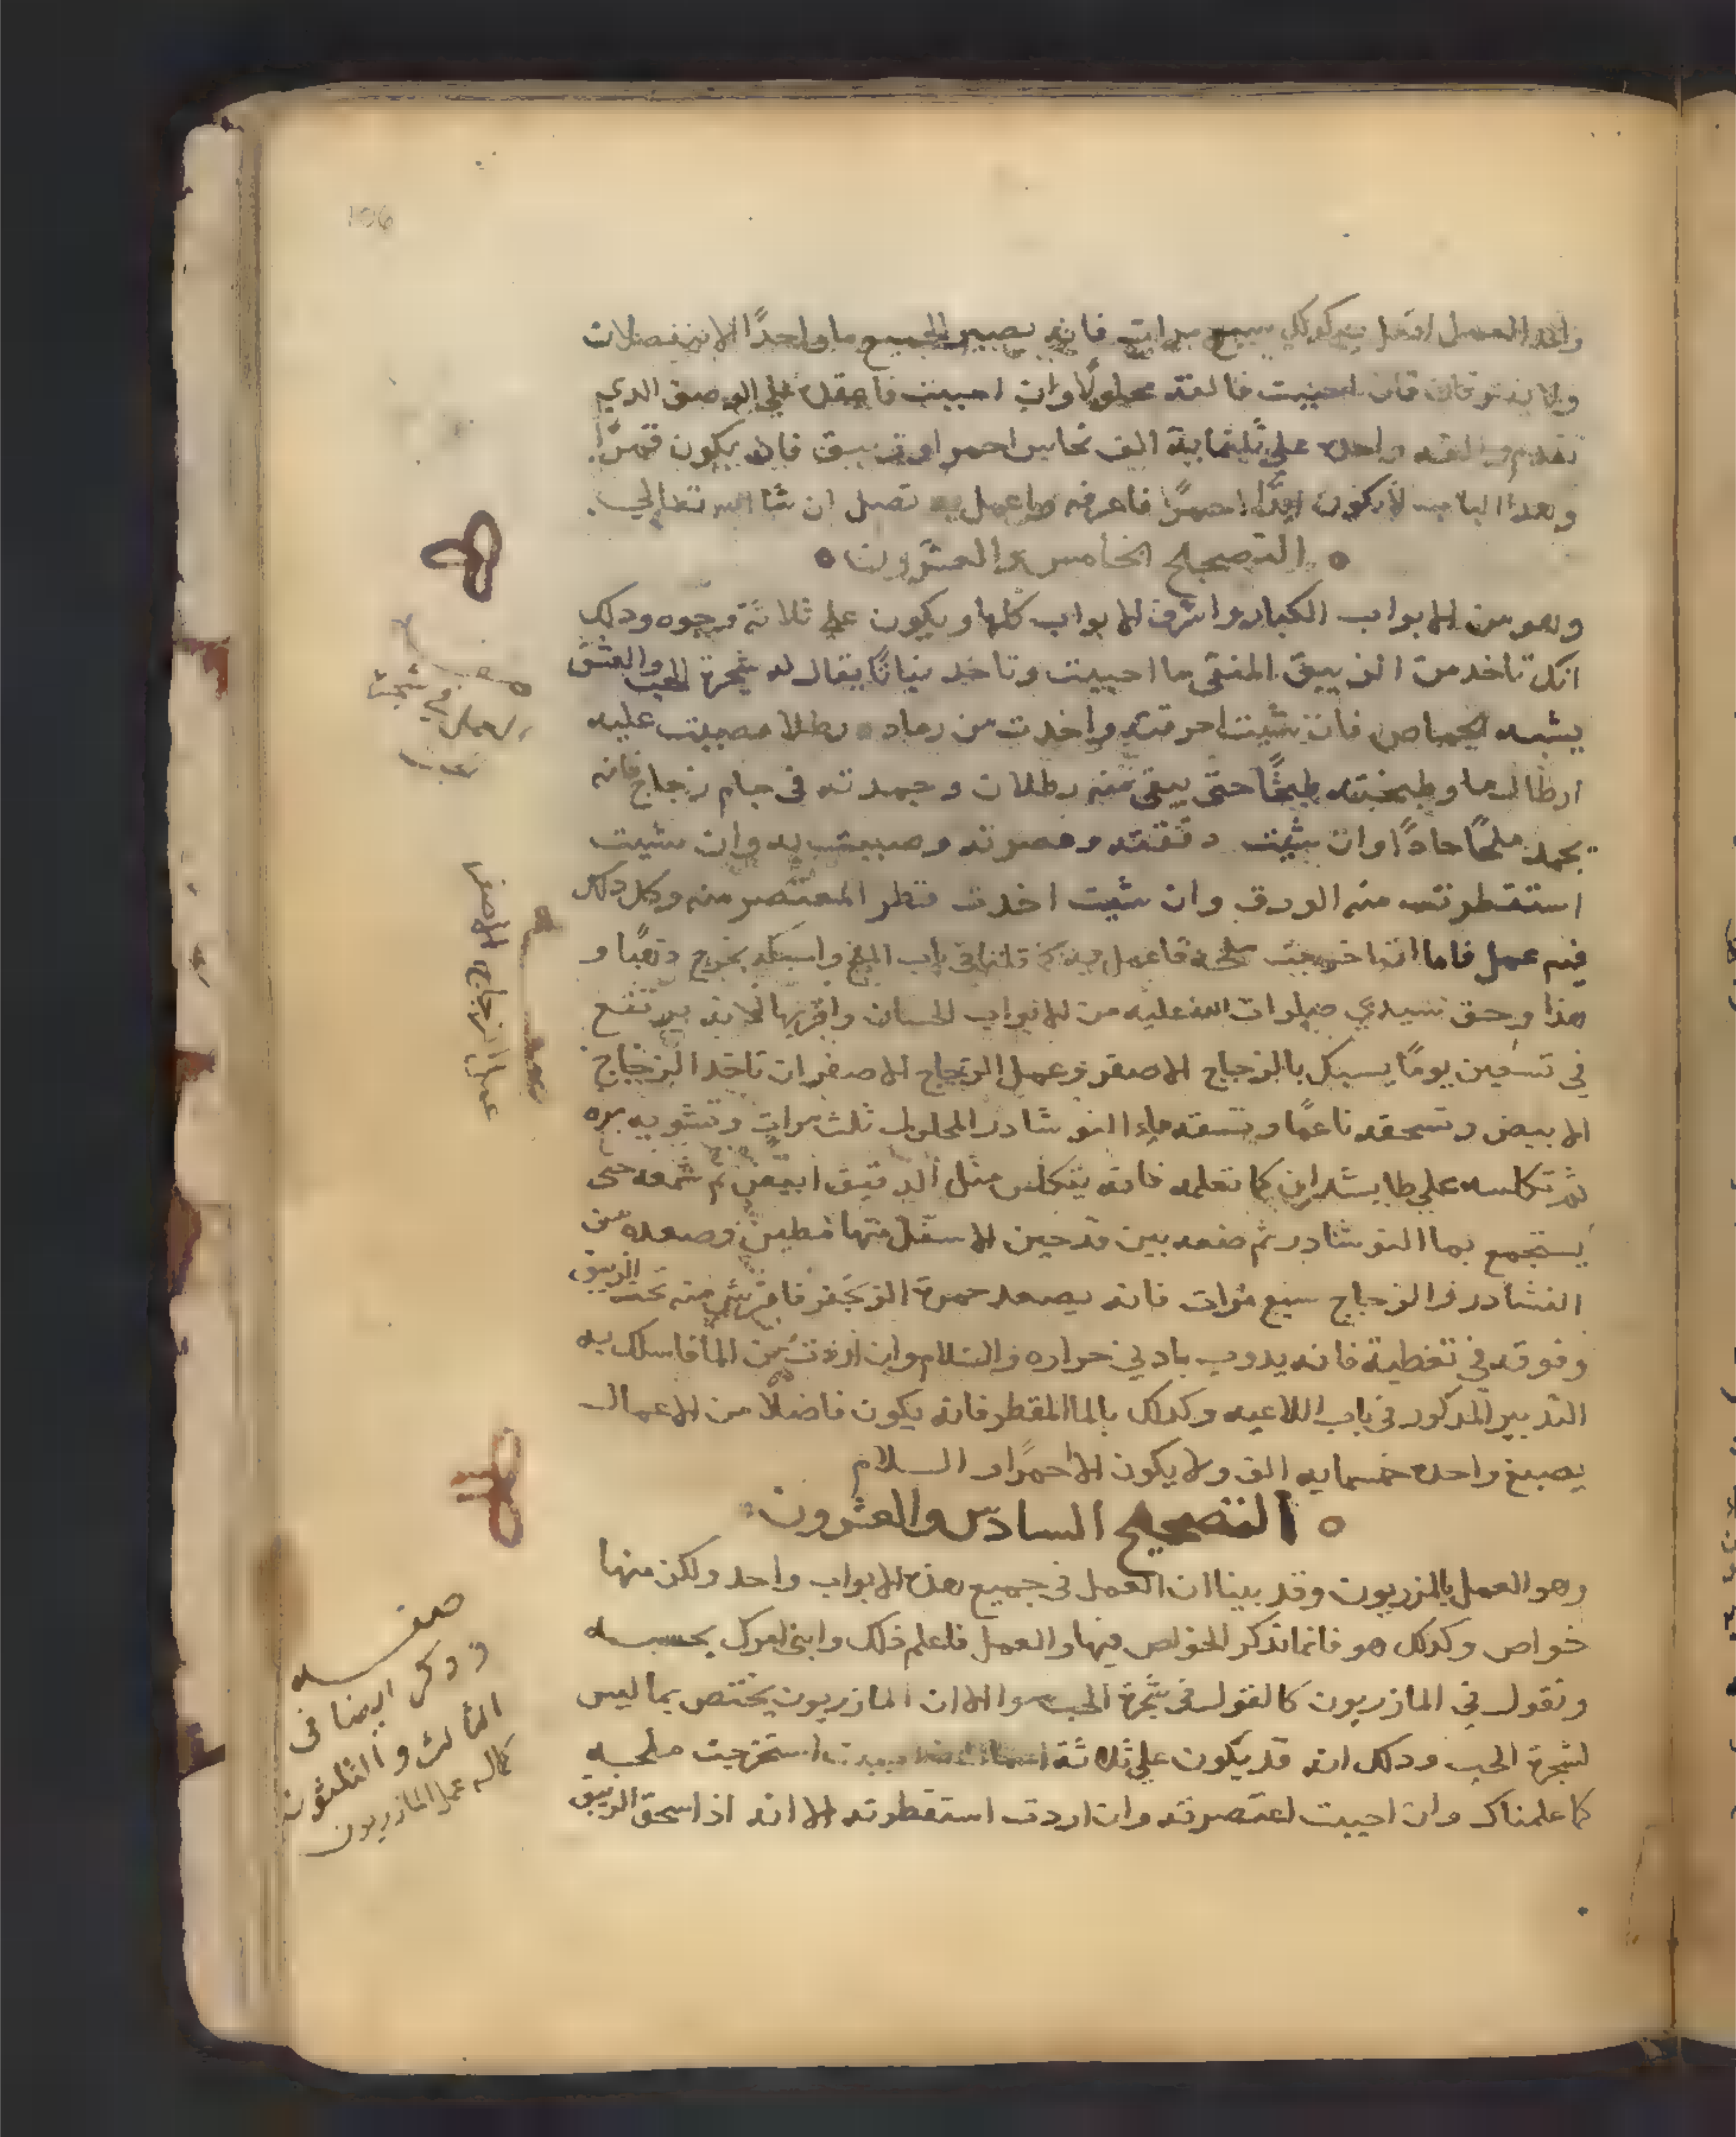 106
واحد العمل افعل به كذلك سبع مرات فانه يصير الجميع ما واحدًا لا ينفصلان
ولا يفترقان فان احببت فالقه محلولًا وان احببت فاعقده علي الوصف الدي
تقدم والقه واحده علي ثلثماية الف نحاس احمر او زيبق فانه يكون قمرًا
وهدا الباب لا يكون ابدًا احمرًا فاعرفه واعمل به تصل ان شا الله تعالي
التصحيح الخامس والعشرون
وهو من الابواب الكبار واشرف الابواب كلها ويكون على ثلاثة وجوه ودلك
انك تاخد من الزيبق المنقى ما احببت وتاخد نباتًا يقال له شجرة الحب والعشق
يشبه الحماض فان شيت احرقته واخدت من رماده رطلا وصببت عليه
ارطال ما وطبخته طبخًا حتى يبقى منه رطلان وجمدته في جام زجاج فانه
يجمد ملحًا حادًا وان شيت دققته وعصرته وصببت به وان شيت
استقطرته منه الورق وان شيت اخدت قطر المعتصر منه وكل دلك
فيه عمل فاما اذا خرجت ملحه فاعمل فيه كما قلنا في باب الملح واسبكه يخرج دهبًا و
هذا وحق سيدي صلوات الله عليه من الابواب الحسان واقربها لانه يرتفع
في تسعين يومًا يسبك بالزجاج الاصفر وعمل الزجاج الاصفر ان تاخد الزجاج
الابيض وتسحقه ناعمًا وتسقه ماء النوشادر المحلول ثلث مرات وتشويه مره
ثم تكلسه علي طابشدان كما تعلمه فانه يتكلس مثل الدقيق ابيض ثم شمعه حتى
يستجمع بما النوشادر ثم ضعه بين قدحين الاسفل منها مطين وصعده من
النشادر والزجاج سبع مرات فانه يصعد حمرة الزنجفر فافرش منه تحت الزيبق
وفوقه في تغطية فانه يدوب بادني حراره والسلام وان اردت من الما فاسلك به
التدبير المدكور في باب اللاعيه وكدلك بالما المقطر فانه يكون فاضلًا من الاعمال
يصبغ واحده خمسمايه الف ولا يكون الا احمرًا والسلام
التصحيح السادس والعشرون
وهو العمل بالمزريون وقد بينا ان العمل في جميع هذه الابواب واحد ولكن منها
خواص وكدلك هو فانما ندكر الخواص فيها والعمل فاعلم ذلك وابني امرك بحسبه
ونقول في المازريون كالقول في شجرة الحب سوا الا ان المازريون يختص بما ليس
لشجرة الحب ودلك انه قد يكون علي ثلاثة استخرجت ملحه
كما علمناك وان احببت اعتصرته وان اردت استقطرته الا انه اذا سحق الزيبق
صفه
العمل في شجرة
الحب
صفه
عمل الزجاج الاصفر
صفه
ودكر ايضا في
الثالث والثلثون
كماله عمل المازريون